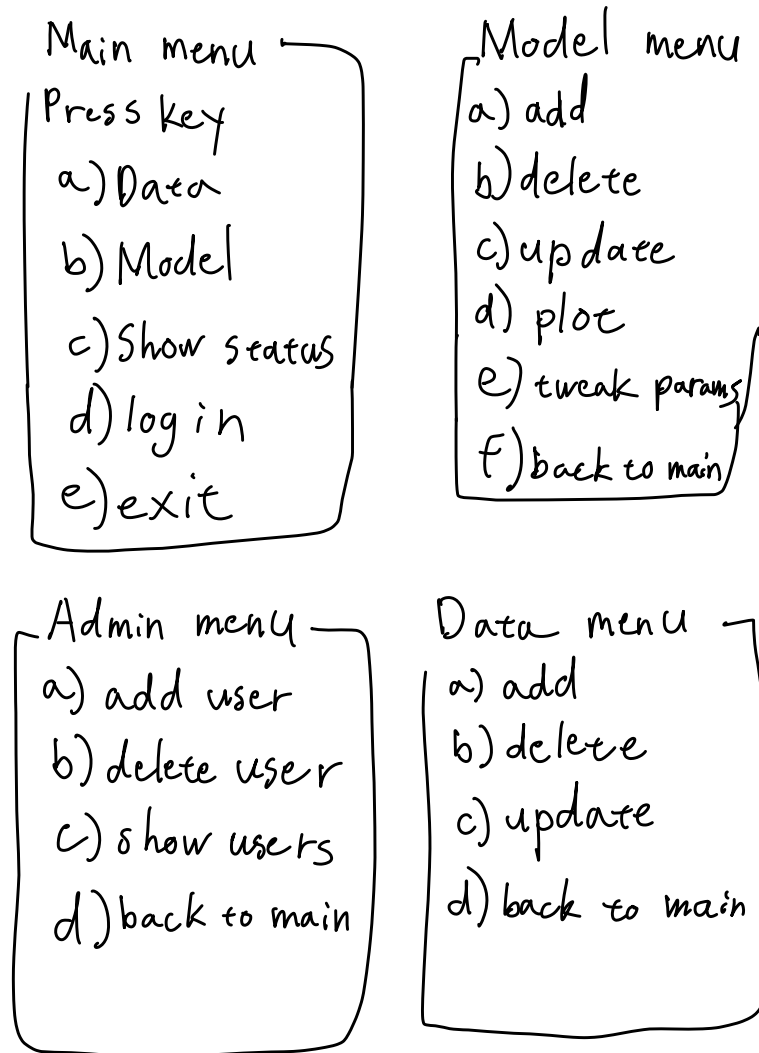 Main menu
Press key
a) Data
b) Model
c) Show status
d) log in
e) exit
Model menu
a) add
b) delete
c) update
d) plot
e) tweak params
f) back to main
Admin menu
a) add user
b) delete user
c) show users
d) back to main
Data menu
a) add
b) delete
c) update
d) back to main